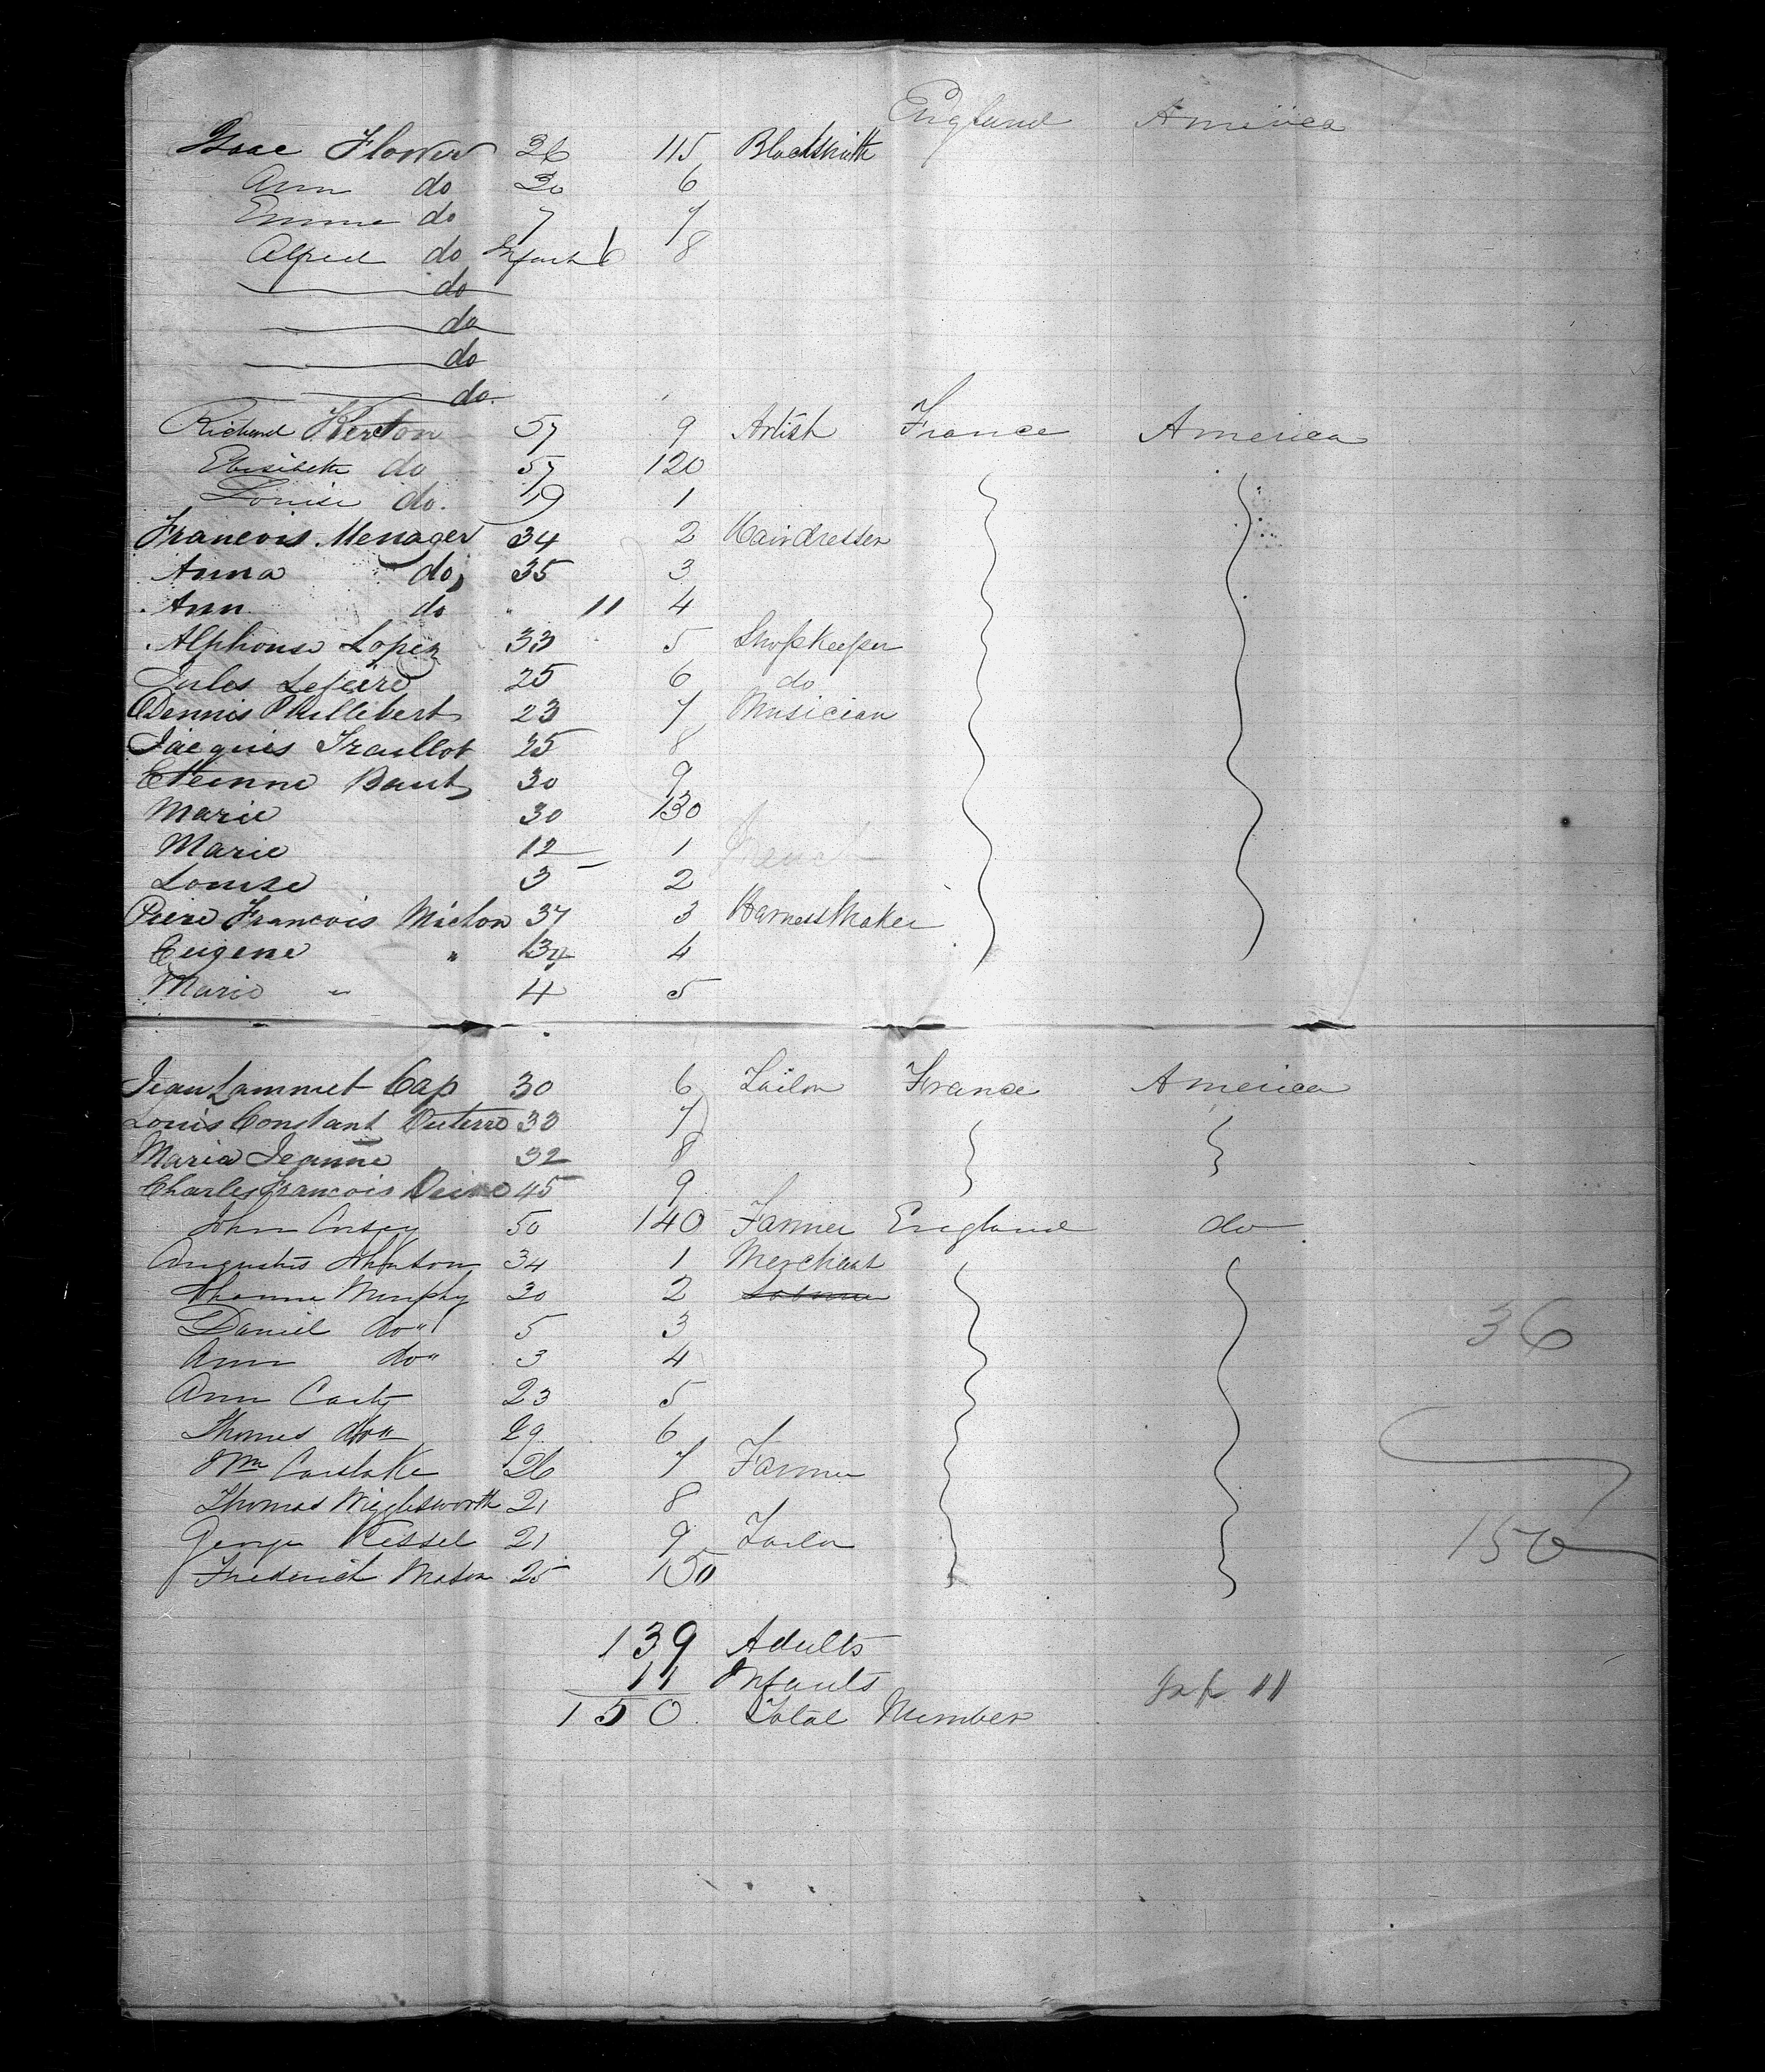 England America
Isaac Flower 36 115 Blacksmith
Ann do 30 6
Emma do 7 7
Alfred do Infant 6 8
do
do
do
do.
Richard Kerton 57 9 Artist France America
Elisibeth do 57 120
Louise do. 19 1
Francois Menager 34 2 Hairdresser
Anna do 35 3
Ann do 11 4
Alphonse Lopez 33 5 Shopkeeper
Jules 25 6 do
Dennis Phillibert 23 7 Musician
Jacquis 25 8
Etienne Baut 30 9
Marie 30 130
Marie 12 1
Louise 3 2
Piere Francois Micton 37 3 Harness Maker
Eugene " 34 4
Marie " 4 5
Jean Lammet Cap 30 6 Tailor France America
Louis Constant 33 7
Maria Jeanne 32 8
Charles Francois 45 9
John 50 140 Farmer England do
Augustus Johnston 34 1 Merchant
Johanna Murphy 30 2
Daniel do " 5 3
Ann do " 3 4
Ann Carty 23 5
Thomas do " 29 6
Wm Carslake 26 7 Farmer
Thomas Wigglesworth 21 8
George Kessel 21 9 Tailor
Frederick Maton 25 150
36
150
139 Adults
11 Infants Inf 11
150. Total Number